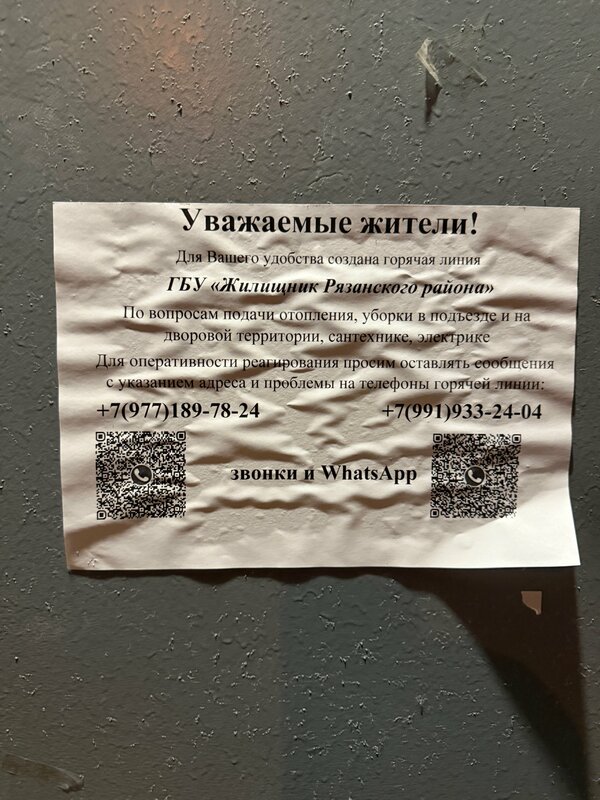 Уважаемые жители!
Для Вашего удобства создана горячая линия
ГБУ «Жилищник Рязанского района»
По вопросам подачи отопления, уборки в подъезде и на
дворовой территории, сантехнике, электрике
Для оперативности реагирования просим оставлять сообщения
с указанием адреса и проблемы на телефоны горячей линии:
+7(977)189-78-24 +7(991)933-24-04
звонки и WhatsApp